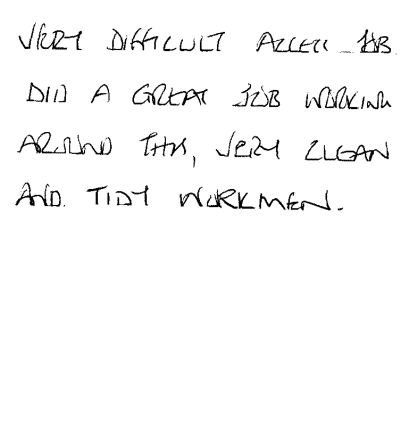 VERY DIFFICULT ACCESS JOB
DID A GREAT JOB WORKING
AROUND THIS, VERY CLEAN
AND TIDY WORKMEN.